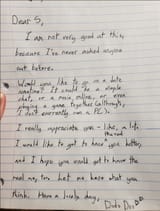 Dear S,
I am not very good at this,
because I've never asked anyone
out before.
Would you like to go on a date
sometime? It could be a simple
chat, or a movie online, or even
playing a game together (although,
I don't currently run a PC).
I really appreciate you - like, a lot,
I would like to get to know you better,
and I hope you would get to know the
real me, too. Let me know what you
think. Have a lovely day,